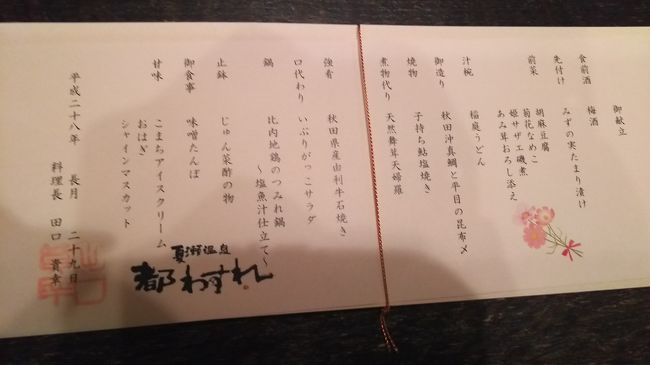 御献立
食前酒 梅酒
先付け みずの実たまり漬け
前菜 胡麻豆腐
菊花なめこ
姫サザエ磯煮
あみ茸おろし添え
汁椀 稲庭うどん
御造り 秋田沖真鯛と平目の昆布〆
焼物 子持ち鮎塩焼き
煮物代り 天然舞茸天婦羅
強肴 秋田県産由利牛石焼き
口代わり いぶりがっこサラダ
鍋 比内地鶏のつみれ鍋
～塩魚汁仕立て～
止鉢 じゅん菜酢の物
御食事 味噌たんぽ
甘味 こまちアイスクリーム
おはぎ
シャインマスカット
平成二十八年 長月 二十九日
料理長 田口 貴幸
夏瀬温泉
都わすれ